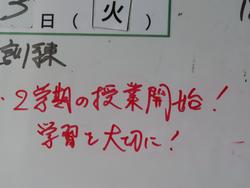 日(火)
訓練
・2学期の授業開始!
学習を大切に!